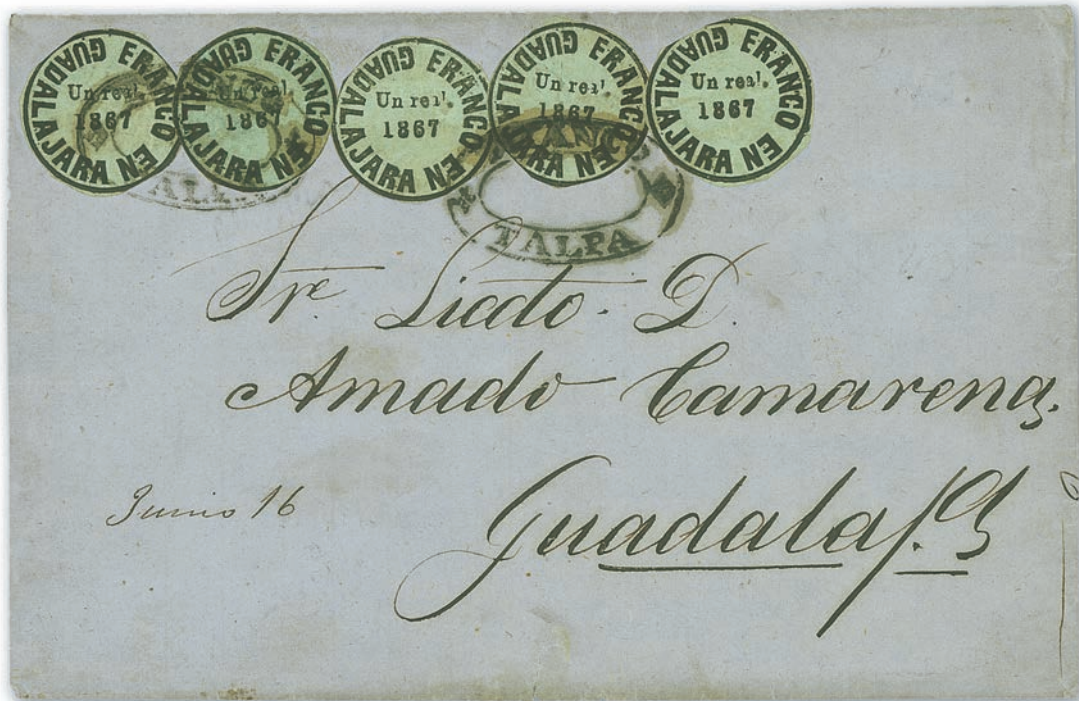 FRANCO EN GUADALAJARA
Un real.
1867
FRANCO EN GUADALAJARA
Un real.
1867
FRANCO EN GUADALAJARA
Un real.
1867
FRANCO EN GUADALAJARA
Un real.
1867
FRANCO EN GUADALAJARA
Un real.
1867
FRANCO
TALPA
Sr. Licdo. D.
Amado Camarena.
Junio 16
Guadalaj.ª